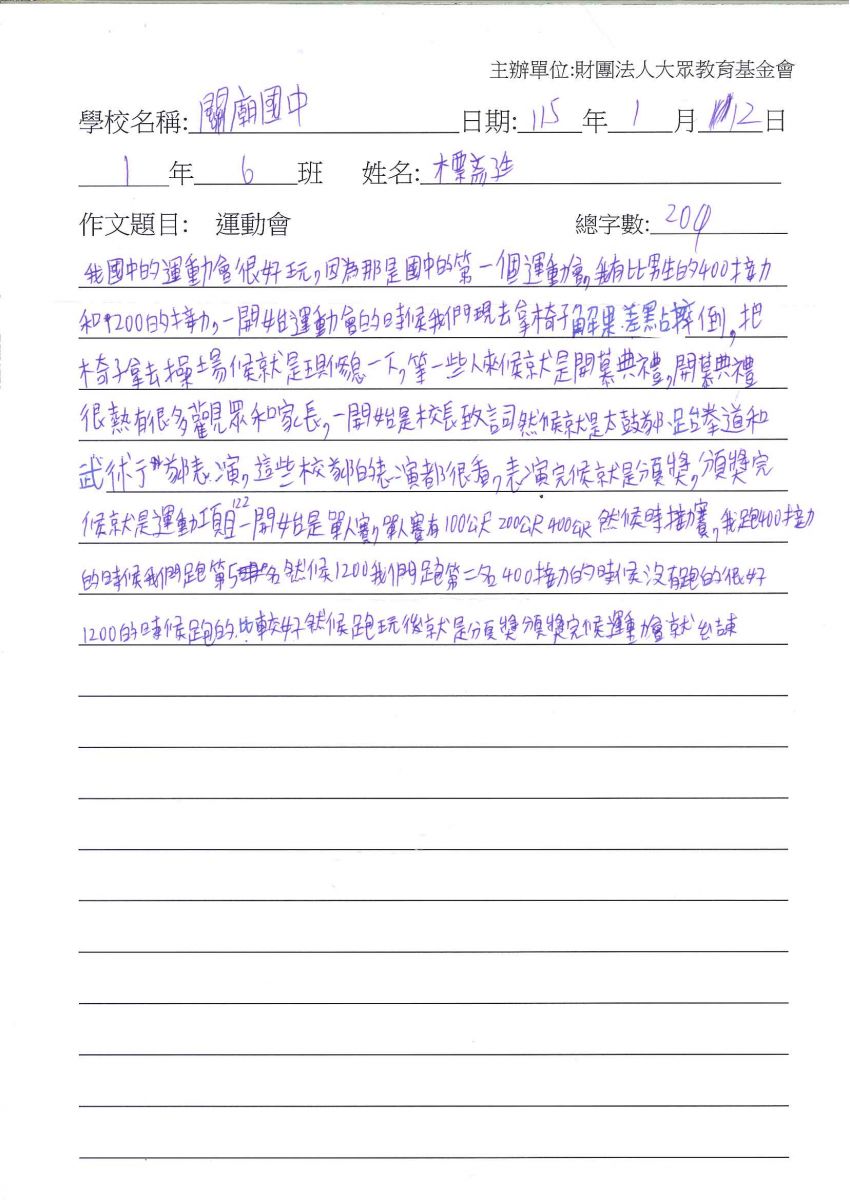 主辦單位:財團法人大眾教育基金會
學校名稱:關廟國中 日期:115年1月12日
1年6班 姓名:
作文題目: 運動會 總字數:209
我國中的運動會很好玩,因為那是國中的第一個運動會,我有比男生的400接力
和1200的接力,一開始運動會的時候我們現去拿椅子解果差點摔倒,把
椅子拿去操場候就是現修息一下,等一些人來候就是開幕典禮,開幕典禮
很熱有很多觀眾和家長,一開始是校長致詞然候就是太鼓部跆拳道和
武術部表演,這些校部的表演都很看,表演完候就是頒獎,頒獎完
候就是運動項目一開始是單人賽,單人賽有100公尺200公尺400公尺然候時接力賽,我跑400接力
的時候我們跑第5名然候1200我們跑第二名400接力的時候沒有跑的很好
1200的時候跑的比較好然候跑玩後就是頒獎頒獎完候運動會就結束